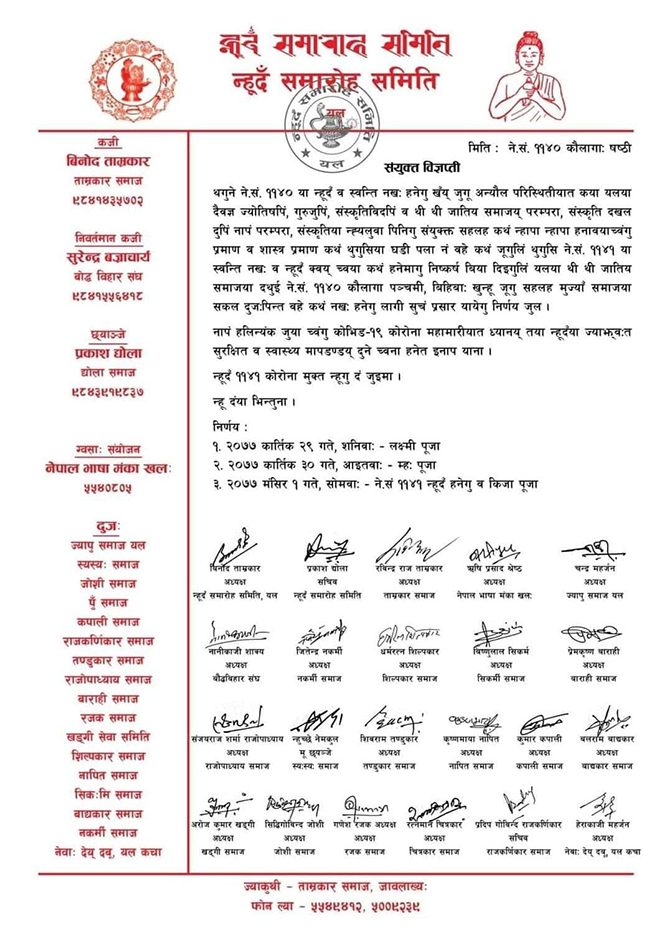 न्हूदँ समारोह समिति
न्हूदँ समारोह समिति
न्हूदँ समारोह समिति
यल
यल
मिति : ने.सं. ११४० कौलागा: षष्ठी
संयुक्त विज्ञप्ती
थगुने ने.सं. ११४० या न्हूदँ व स्वन्ति नख: हनेगु खँय् जुगू अन्यौल परिस्थितीयात कया यलया
दैवज्ञ ज्योतिषपिं, गुरुजुपिं, संस्कृतिविदपिं व थी थी जातिय समाजय् परम्परा, संस्कृति दखल
दुपिं नापं परम्परा, संस्कृतिया न्ह्यलुवा पिनिगु संयुक्त सहलह कथं न्हापा न्हापा हनावयाच्वंगु
प्रमाण व शास्त्र प्रमाण कथं थुगुसिया घडी पला नं वहे कथं जूगुलिं थुगुसि ने.सं. ११४१ या
स्वन्ति नख: व न्हूदँ क्वय् च्वया कथं हनेमागु निष्कर्ष बिया दिइगुलिं यलया थी थी जातिय
समाजया दथुई ने.सं. ११४० कौलागा पञ्चमी, बिहिबा: खुन्हू जूगु सहलह मुज्याँ समाजया
सकल दुज:पिन्त वहे कथं नख: हनेगु लागी सुचं प्रसार यायेगु निर्णय जुल ।
नापं हलिन्यंक जुया च्वंगु कोभिड-१९ कोरोना महामारीयात ध्यानय् तया न्हूदँया ज्याझ्व:त
सुरक्षित व स्वास्थ्य मापडण्डय् दुने च्वना हनेत इनाप याना ।
न्हूदँ ११४१ कोरोना मुक्त न्हूगु दं जुइमा ।
न्हू दंया भिन्तुना ।
निर्णय :
१. २०७७ कार्तिक २९ गते, शनिवा: - लक्ष्मी पूजा
२. २०७७ कार्तिक ३० गते, आइतवा: - म्ह: पूजा
३. २०७७ मंसिर १ गते, सोमवा: - ने.सं ११४१ न्हूदँ हनेगु व किजा पूजा
कजी
बिनोद ताम्रकार
ताम्रकार समाज
९८४१४३५७०२
निवर्तमान कजी
सुरेन्द्र बज्राचार्य
बोद्ध बिहार संघ
९८४१५५६४१८
छ्याञ्जे
प्रकाश द्योला
द्योला समाज
९८४३९१९८३७
ग्वसा: संयोजन
नेपाल भाषा मंका खल:
५५४०८०५
दुज:
ज्यापु समाज यल
स्यस्य: समाज
जोशी समाज
पुँ समाज
कपाली समाज
राजकर्णिकार समाज
तण्डुकार समाज
राजोपाध्याय समाज
बाराही समाज
रजक समाज
खड्गी सेवा समिति
शिल्पकार समाज
नापित समाज
सिक:मि समाज
बाद्यकार समाज
नकर्मी समाज
नेवा: देय् दबू, यल कचा
बिनोद ताम्रकार प्रकाश द्योला रविन्द्र राज ताम्रकार ऋषि प्रसाद श्रेष्ठ चन्द्र महर्जन
अध्यक्ष सचिव अध्यक्ष अध्यक्ष अध्यक्ष
न्हूदँ समारोह समिति, यल न्हूदँ समारोह समिति ताम्रकार समाज नेपाल भाषा मंका खल: ज्यापु समाज यल
नानीकाजी शाक्य जितेन्द्र नकर्मी धर्मरत्न शिल्पकार बिष्णुलाल सिकर्म प्रेमकृष्ण बाराही
अध्यक्ष अध्यक्ष अध्यक्ष अध्यक्ष अध्यक्ष
बौद्धविहार संघ नकर्मी समाज शिल्पकार समाज सिकर्मी समाज बाराही समाज
संजयराज शर्मा राजोपाध्याय न्हुच्छे नेमकुल शिवराम तण्डुकार कृष्णमाया नापित कुमार कपाली बलराम बाद्यकार
अध्यक्ष मू छ्याञ्जे अध्यक्ष अध्यक्ष अध्यक्ष अध्यक्ष
राजोपाध्याय समाज स्य:स्य: समाज तण्डुकार समाज नापित समाज कपाली समाज बाद्यकार समाज
अरोज कुमार खड्गी सिद्धिगोविन्द जोशी गणेश रजक अध्यक्ष रत्नमान चित्रकार प्रदिप गोविन्द राजकर्णिकार हेराकाजी महर्जन
अध्यक्ष अध्यक्ष अध्यक्ष अध्यक्ष सचिव अध्यक्ष
खड्गी समाज जोशी समाज रजक समाज चित्रकार समाज राजकर्णिकार समाज नेवा: देय् दबू, यल कचा
ज्याकुथी - ताम्रकार समाज, जावलाख्य:
फोन ल्या - ५५४९४१२, ५००९२३९